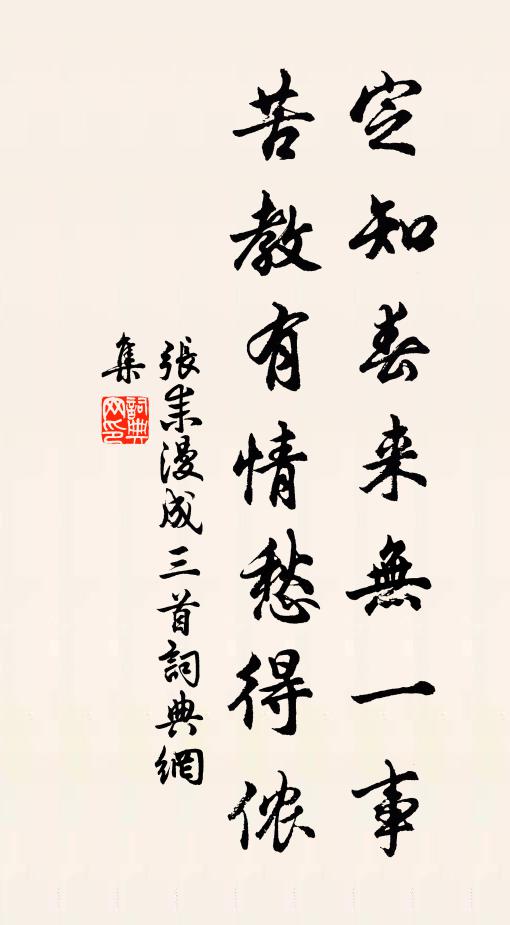 定知春来無一事
苦教有情愁得侬
張耒漫成三首詞典網
集
詞典
网印